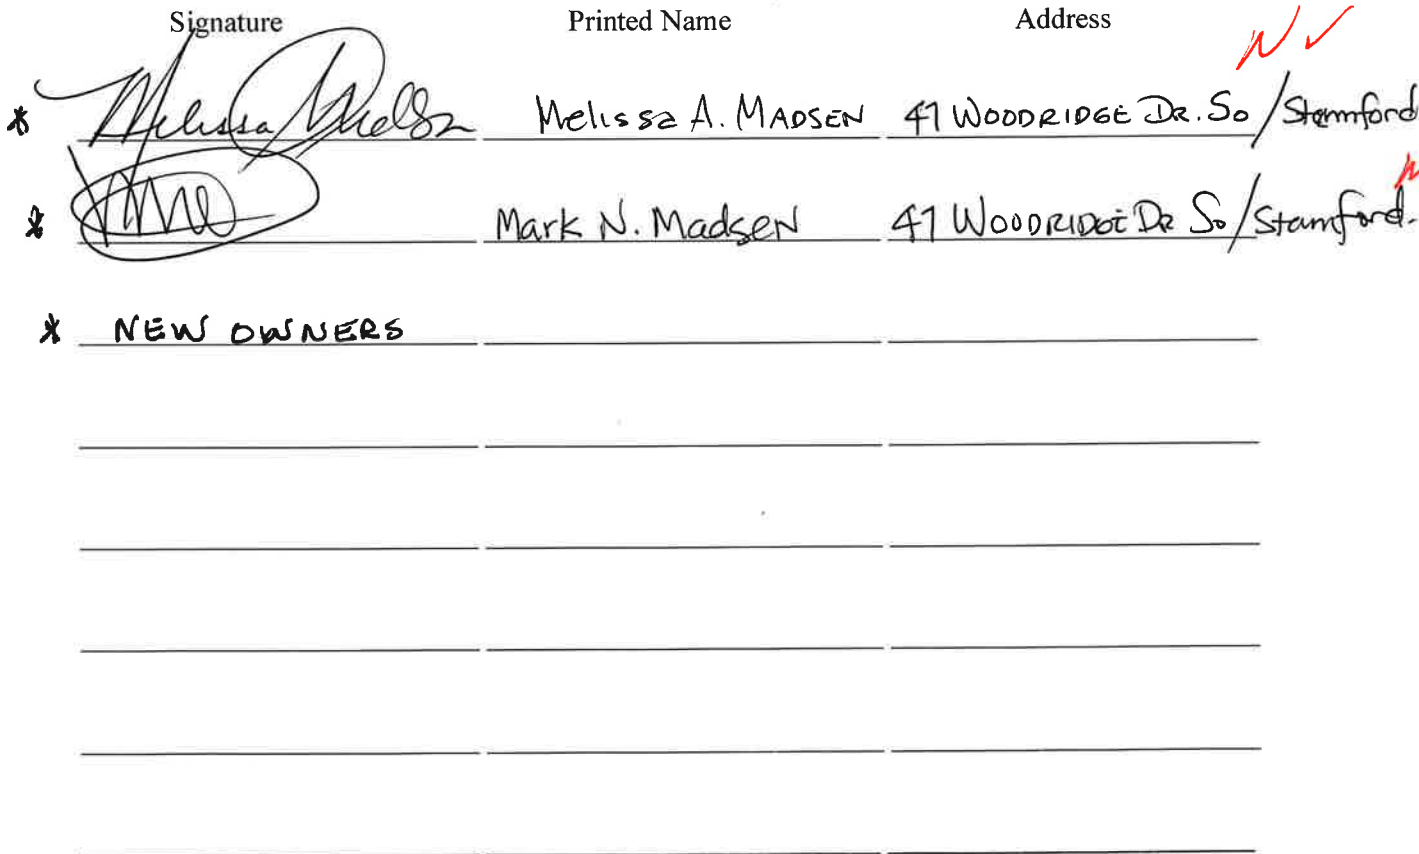 Signature Printed Name Address
N ✓
* Melissa Madsen Melissa A. MADSEN 47 WOODRIDGE DR. So / Stamford
* Mark N. Madsen 47 WOODRIDGE DR So / Stamford.
* NEW OWNERS